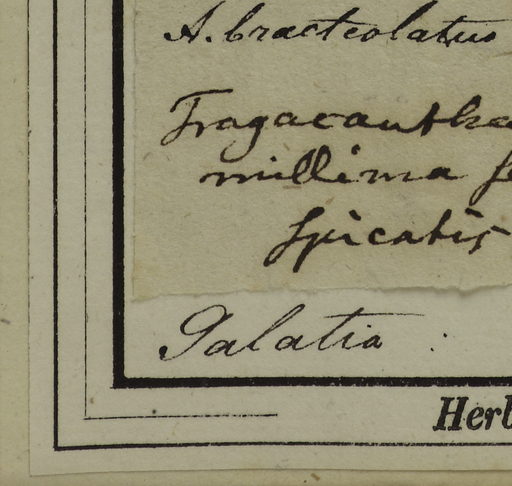 A. bracteolatus
Tragacantha
millima
spicatis
Galatia
Herb